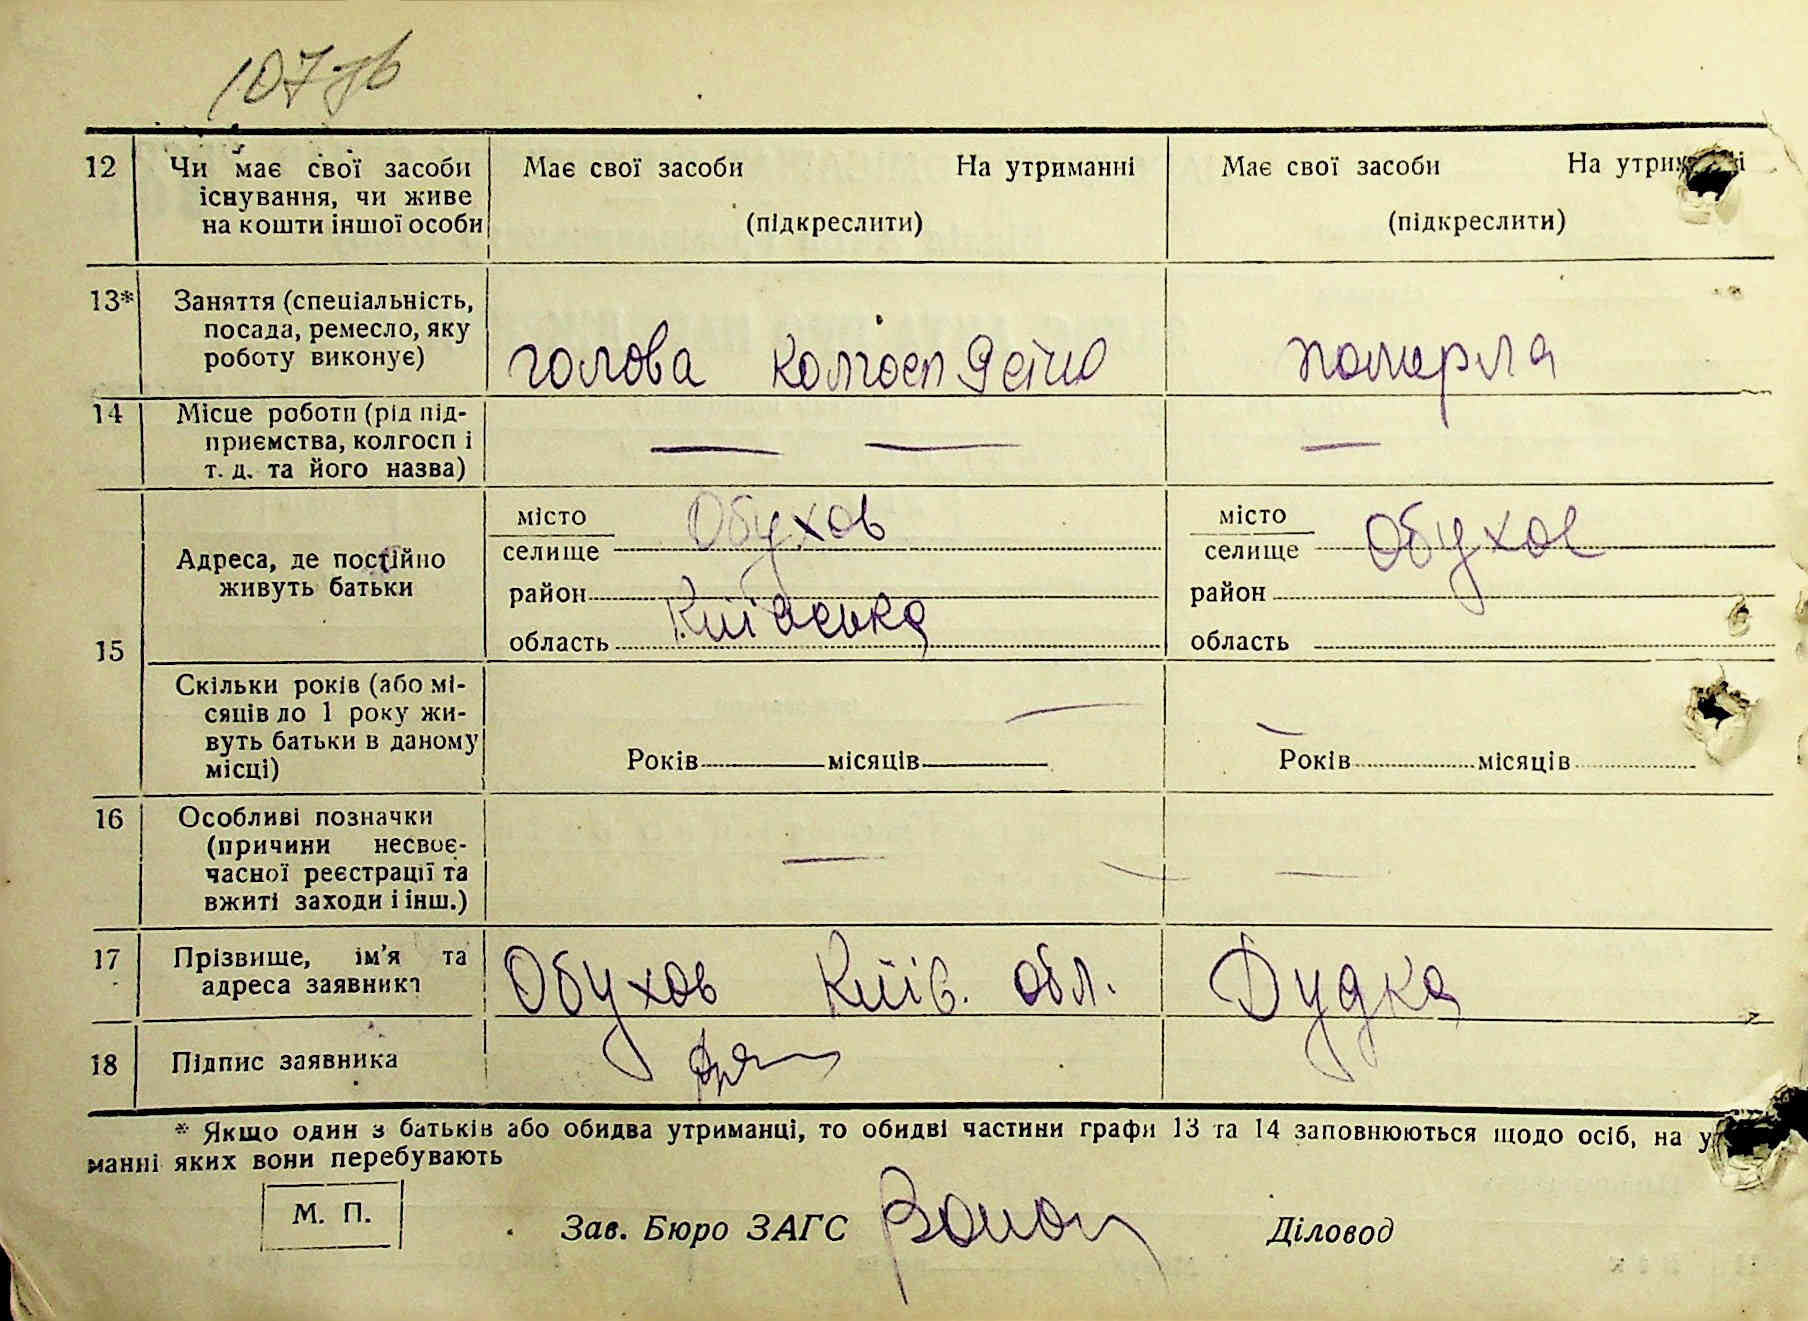 107 зв
12 Чи має свої засоби Має свої засоби На утриманні Має свої засоби На утрим і
існування, чи живе
на кошти іншої особи (підкреслити) (підкреслити)
13* Заняття (спеціальність,
посада, ремесло, яку
роботу виконує) голова колгосп померла
14 Місце роботи (рід під-
приємства, колгосп і — — —
т. д. та його назва)
місто Обухов місто Обухов
Адреса, де постійно селище селище
живуть батьки район район
15 область Київська область
Скільки років (або мі-
сяців до 1 року жи- — —
вуть батьки в даному
місці) Років місяців Років місяців
16 Особливі позначки
(причини несвоє-
часної реєстрації та — —
вжиті заходи і інш.)
17 Прізвище, ім'я та
адреса заявника Обухов Київ. обл. Дудка
18 Підпис заявника
* Якщо один з батьків або обидва утриманці, то обидві частини графи 13 та 14 заповнюються щодо осіб, на у
манні яких вони перебувають
М. П.
Зав. Бюро ЗАГС Діловод